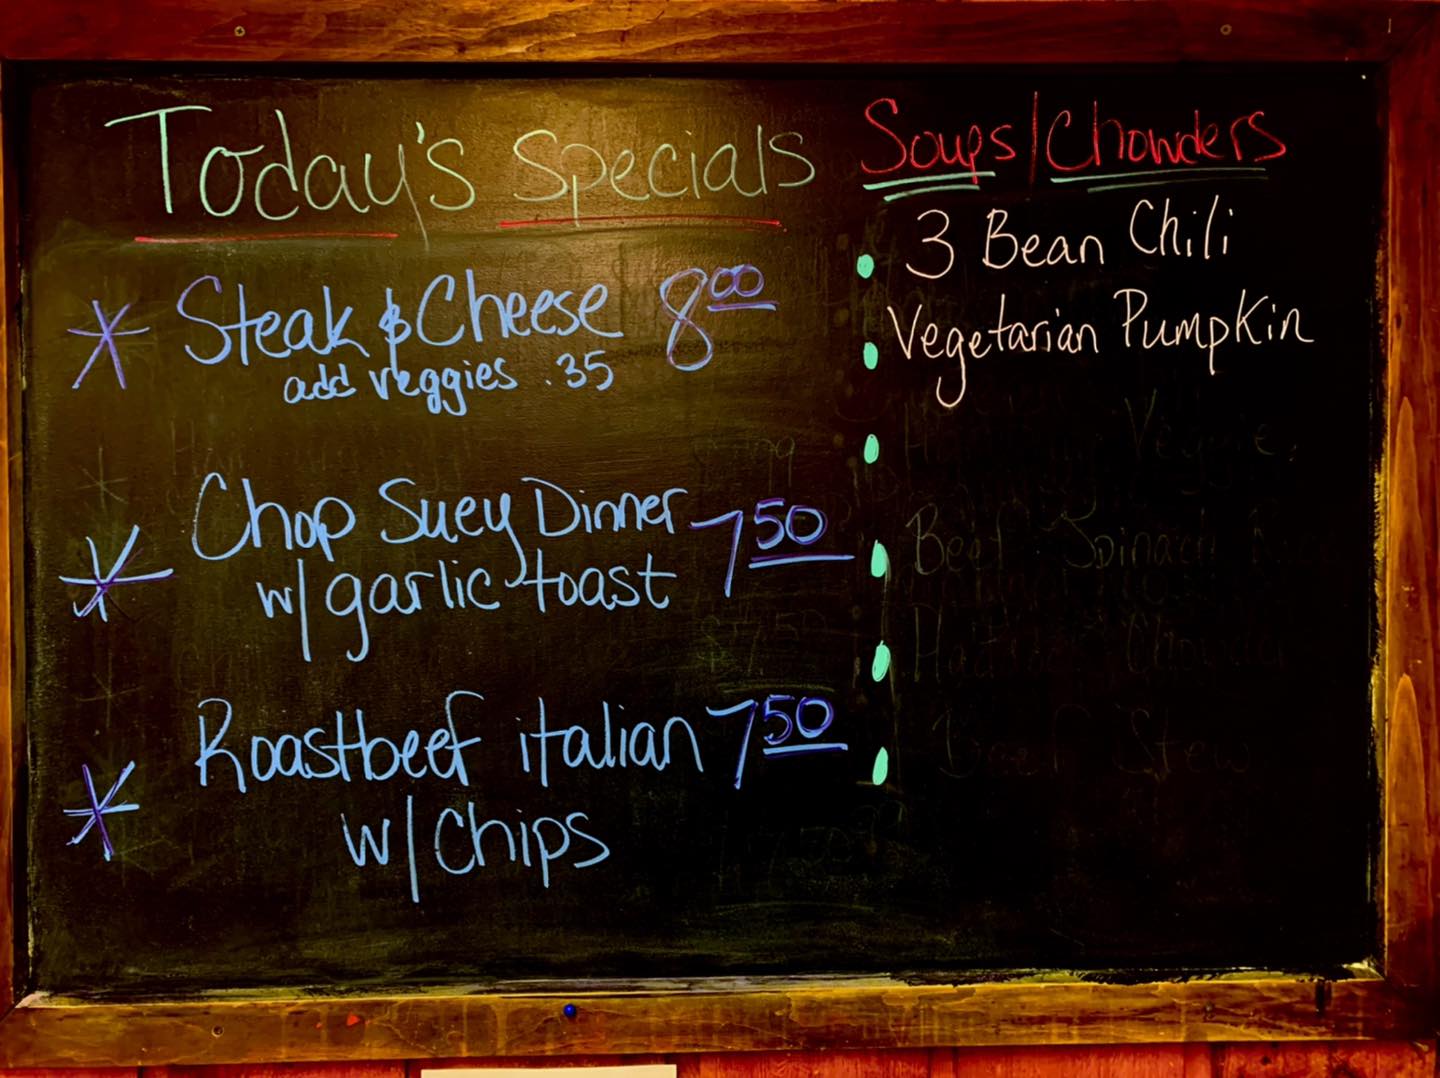 Today's Specials
Steak & Cheese 8.00
add veggies .35
Chop Suey Dinner 7.50
w/ garlic toast
Roastbeef italian 7.50
w/ chips
Soups/Chowders
3 Bean Chili
Vegetarian Pumpkin
Beef Stew